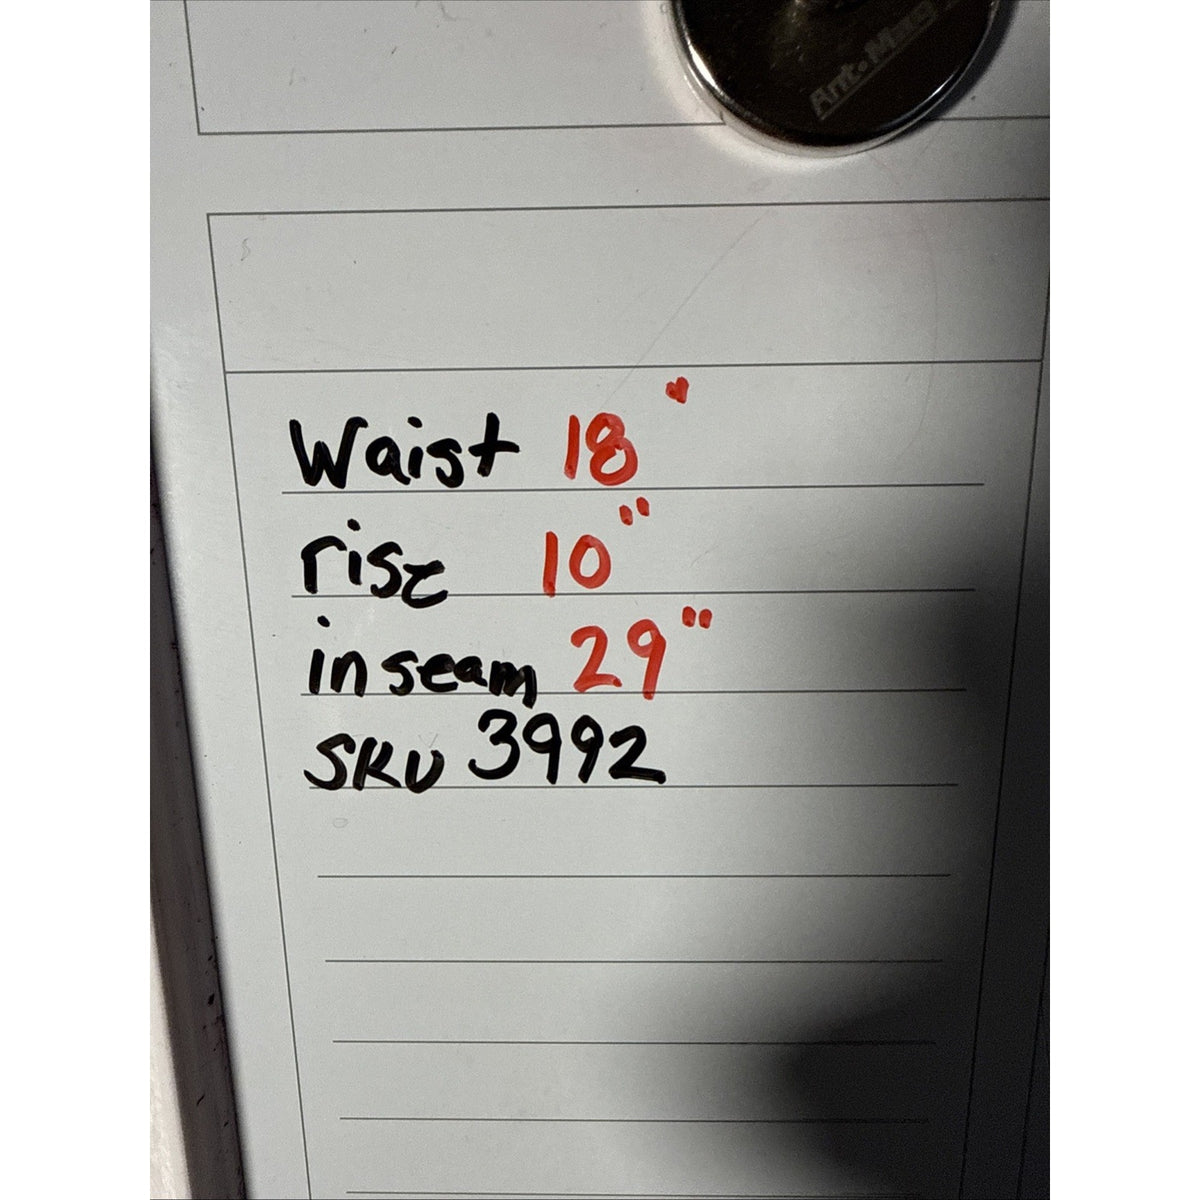 Art.Mag
Waist 18"
rise 10"
inseam 29"
SKU 3992